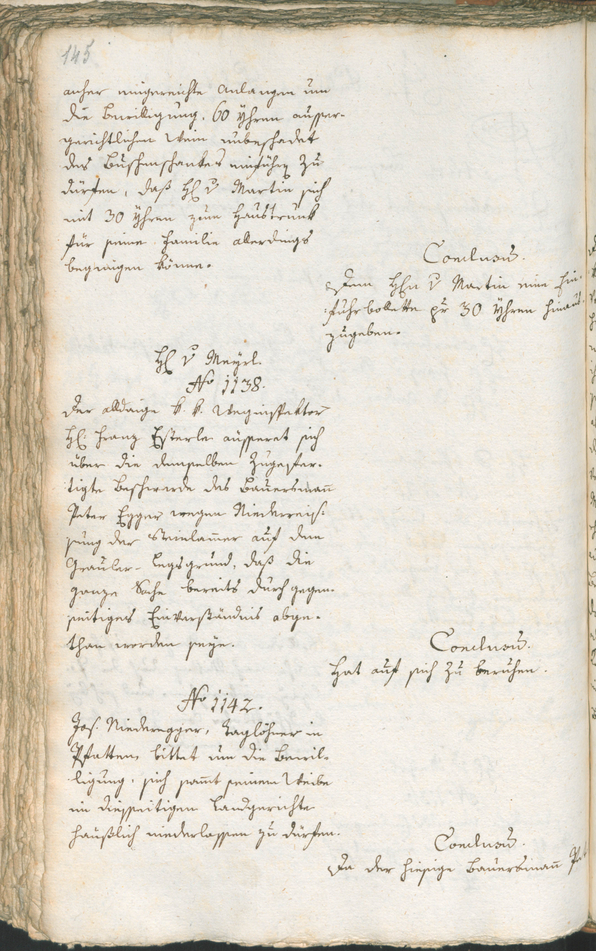 145
anher eingereichte Anlangen um
die Bewilligung, 60 Yhren ausser-
gerichtlichen Wein unbeschadet
des Buschenschankes einführen zu
dürfen, daß H v Martin sich
mit 30 Yhren zum Haustrunk
für seine Familie allerdings
begnügen könne.
Conclusum.
Dem Hhn v Martin eine Ein-
fuhrbollette pr 30 Yhren hinaus-
zugeben.
H v Meyrl.
No 1138.
Der alldaige k. k. Weginspektor
H. Franz Esterle äusseret sich
über die demselben zugefer-
tigte Beschwerde des Bauersmann
Peter Egger wegen Niederreis-
sung der Steinlammer auf dem
Legsgrund, daß die
ganze Sache bereits durch gegen-
seitiges Einverständnis abge-
than worden seye.
Conclusum.
Hat auf sich zu beruhen.
No 1142.
Jos. Niederegger, Taglöhner in
Pfatten, bittet um die Bewil-
ligung, sich samt seinem Weibe
im diesseitigen Landgerichte
häuslich niederlassen zu dürfen.
Conclusum.
Da der hiesige Bauersmann